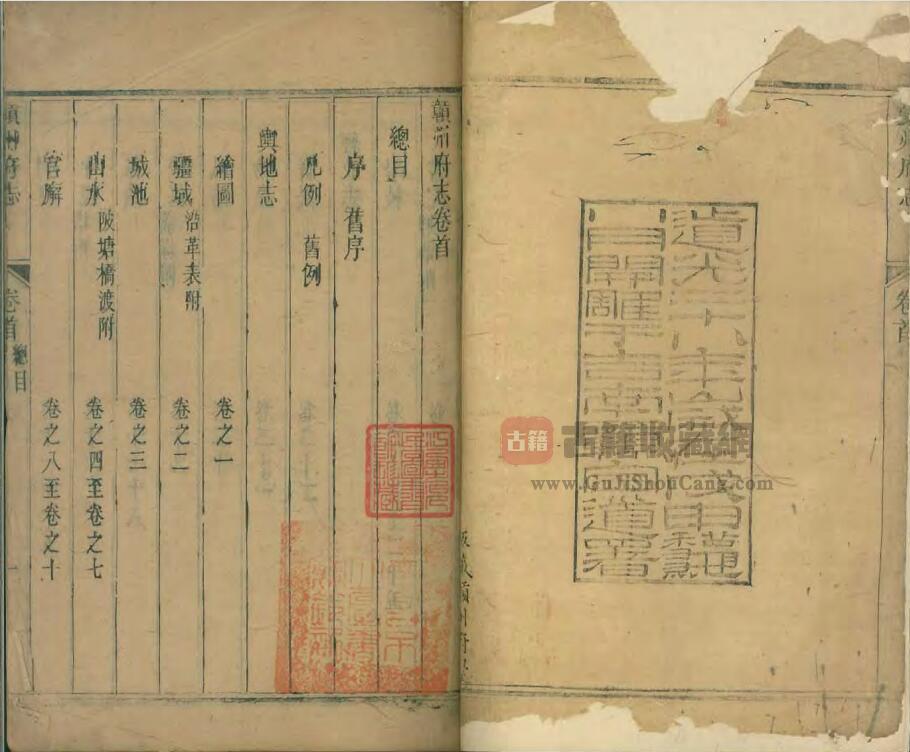 卷首
道光二十八年歲戊申
開雕于吉南贛寧道署
古籍
古籍收藏網
www.GuJiShouCang.com
贛州府志卷首
總目
序 舊序
凡例 舊例
輿地志
繪圖 卷之一
疆域 沿革表附 卷之二
城池 卷之三
山水 陂塘橋渡附 卷之四至卷之七
官廨 卷之八至卷之十
贛州府志 卷首 總目 一